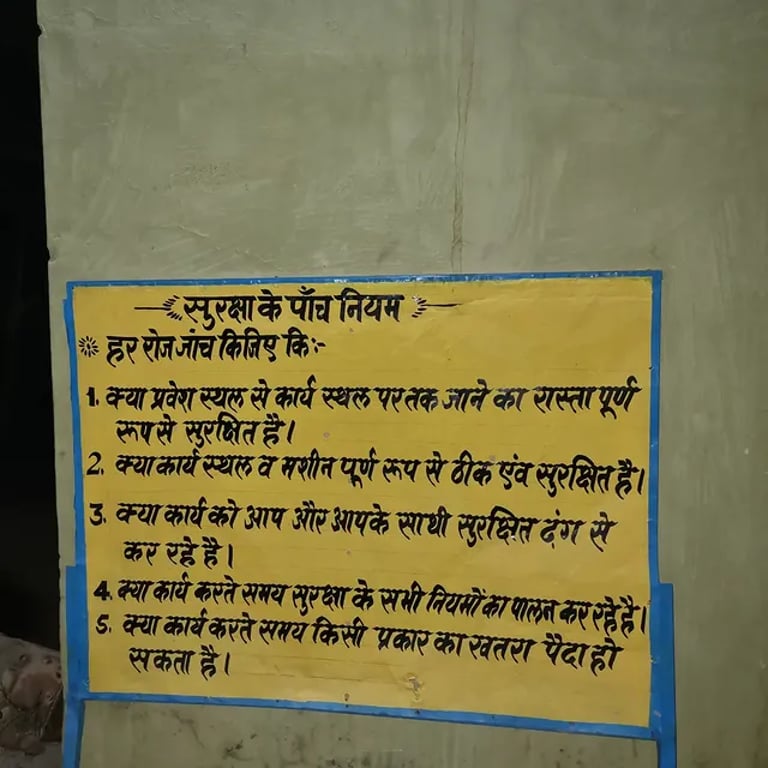 सुरक्षा के पाँच नियम
हर रोज जांच किजिए कि:-
1. क्या प्रवेश स्थल से कार्य स्थल पर तक जाने का रास्ता पूर्ण
रूप से सुरक्षित है।
2. क्या कार्य स्थल व मशीन पूर्ण रूप से ठीक एंव सुरक्षित है।
3. क्या कार्य को आप और आपके साथी सुरक्षित ढ़ंग से
कर रहे है।
4. क्या कार्य करते समय सुरक्षा के सभी नियमों का पालन कर रहे है।
5. क्या कार्य करते समय किसी प्रकार का खतरा पैदा हो
सकता है।